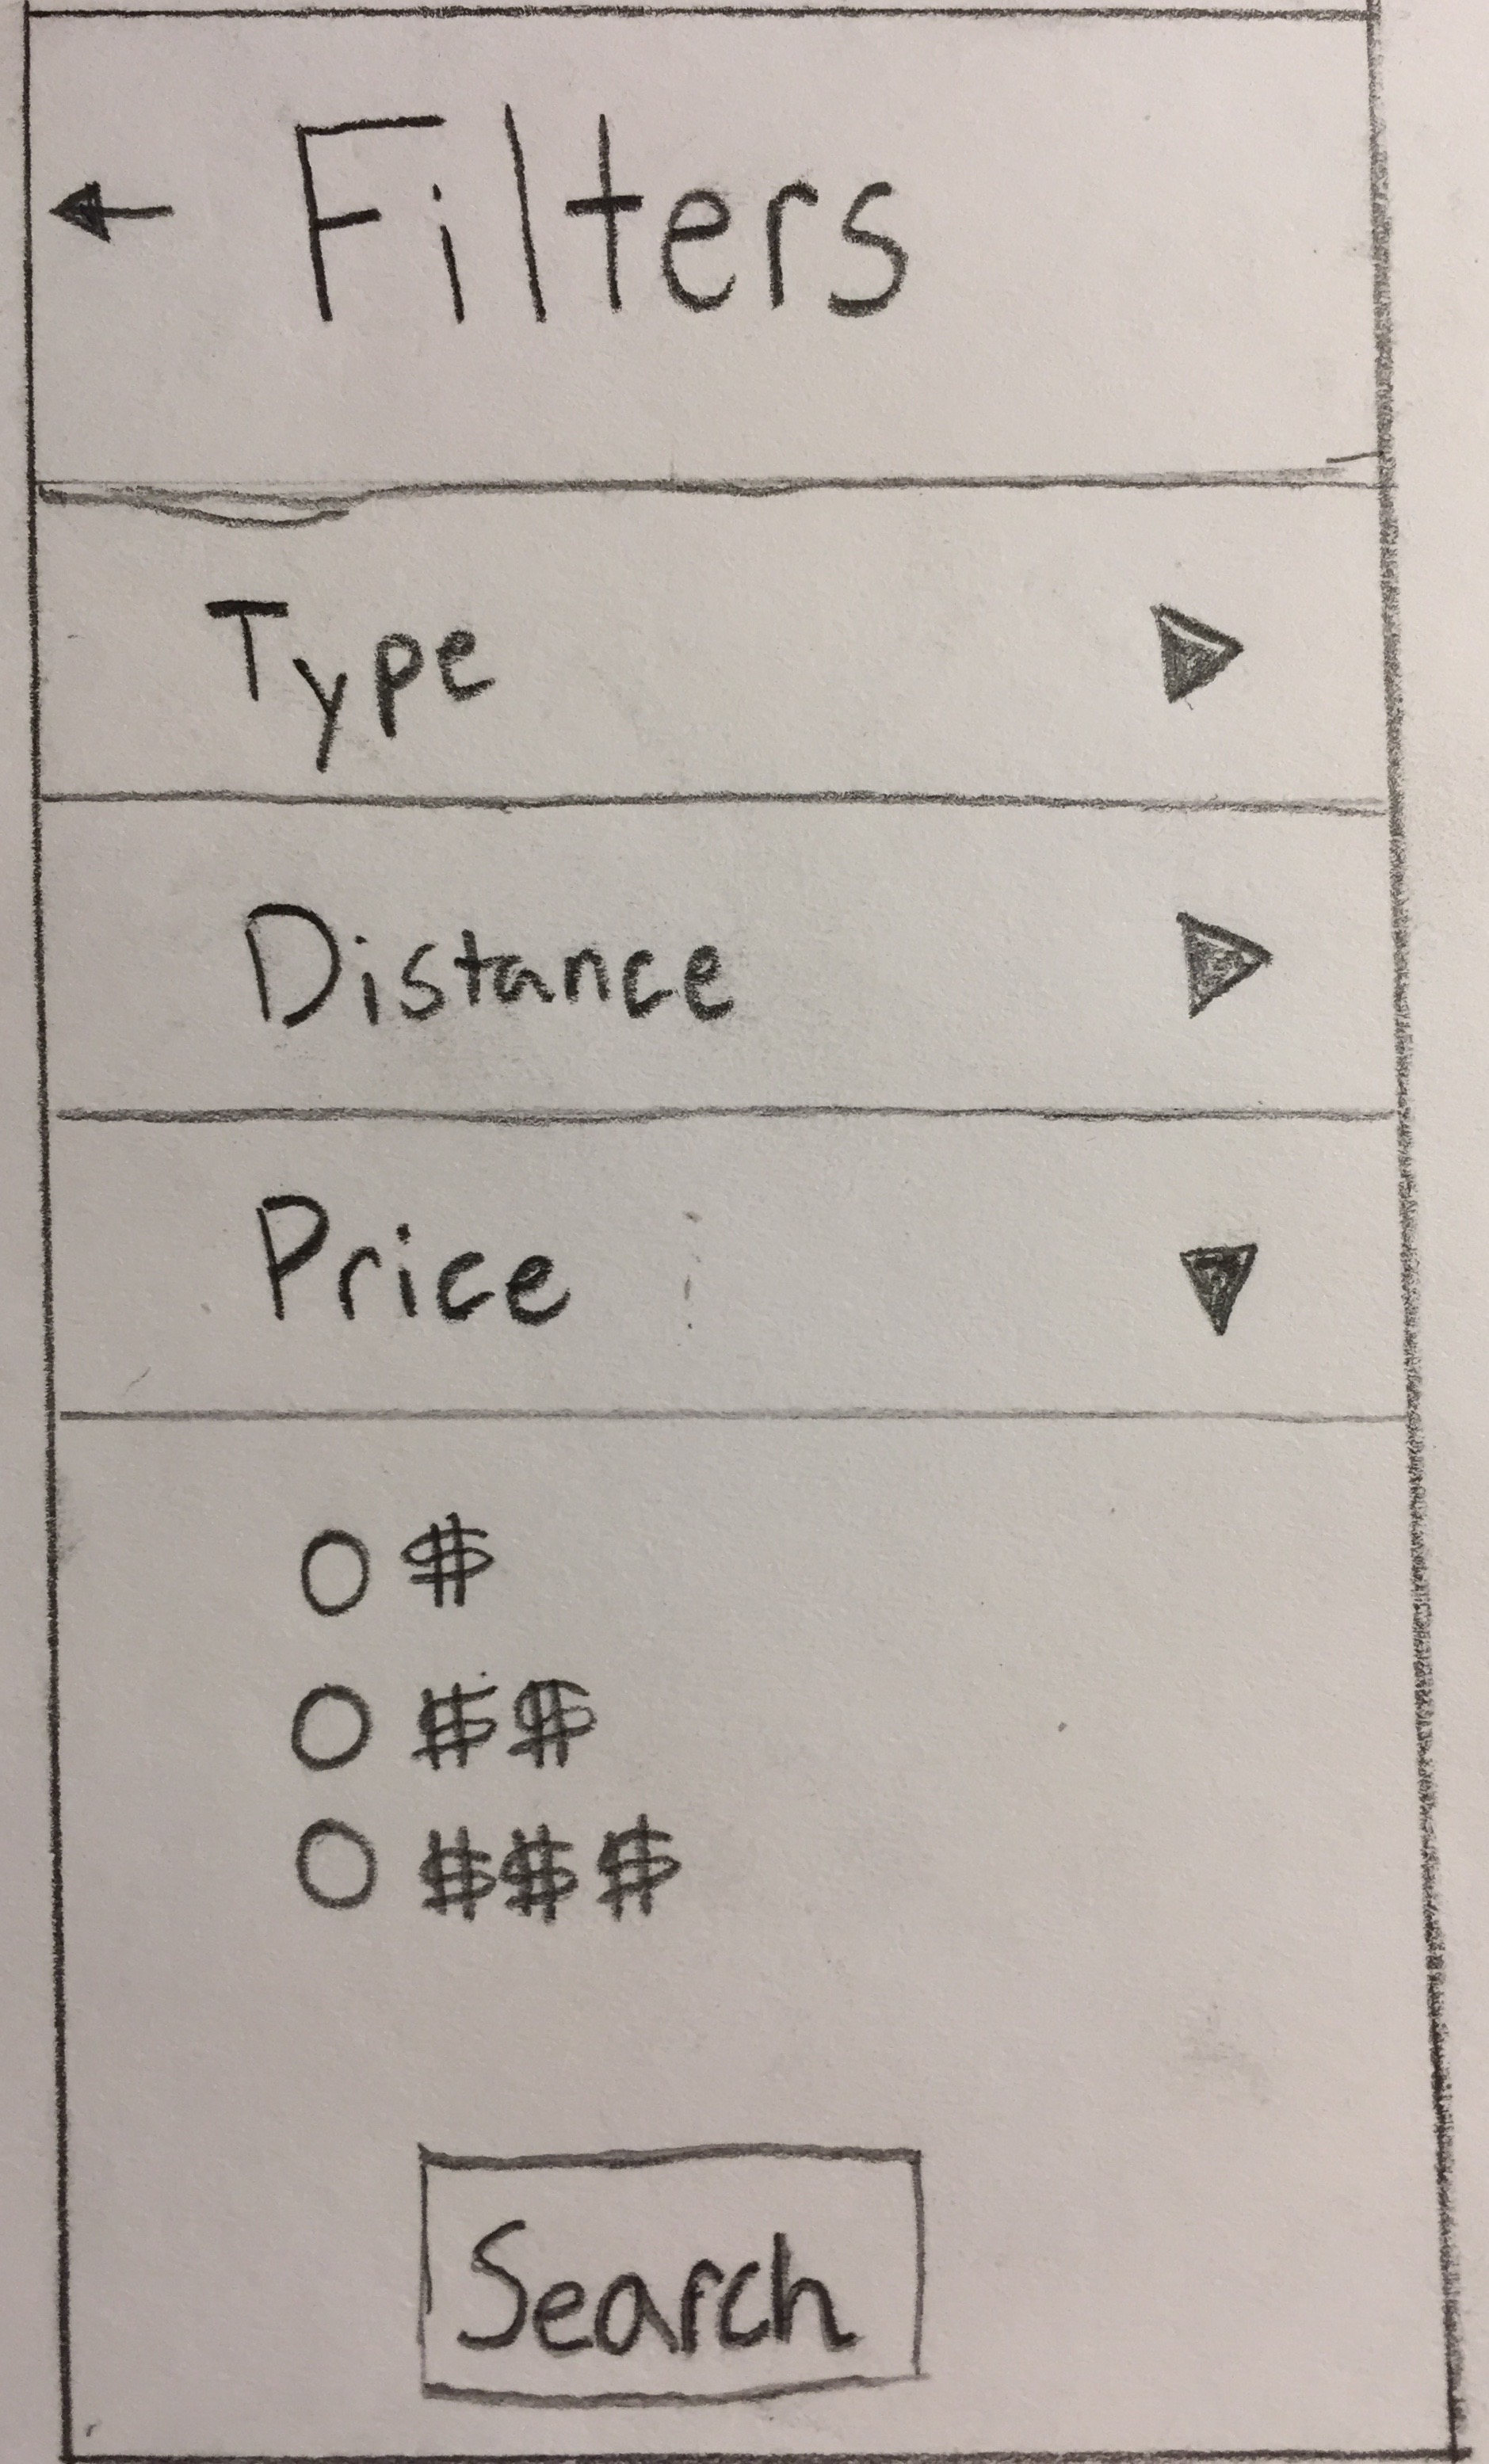 Filters
Type
Distance
Price
$
$$
$$$
Search